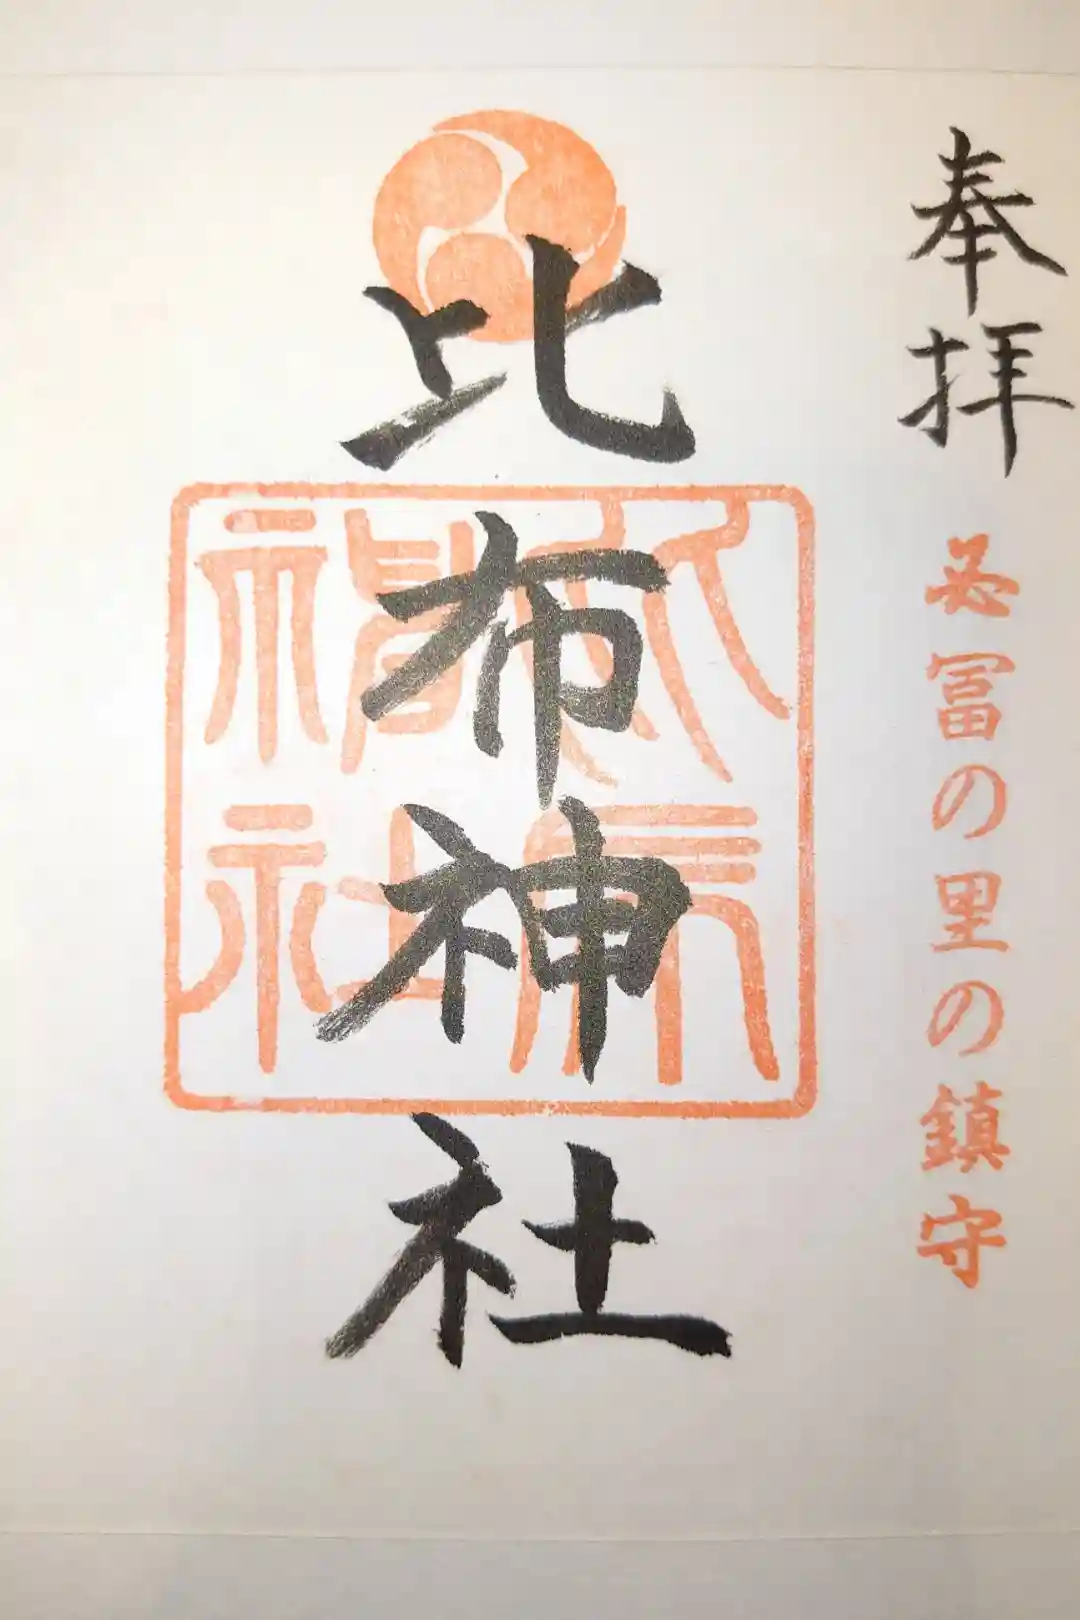 奉拝
冨の里の鎮守
比布神社
比布
神社